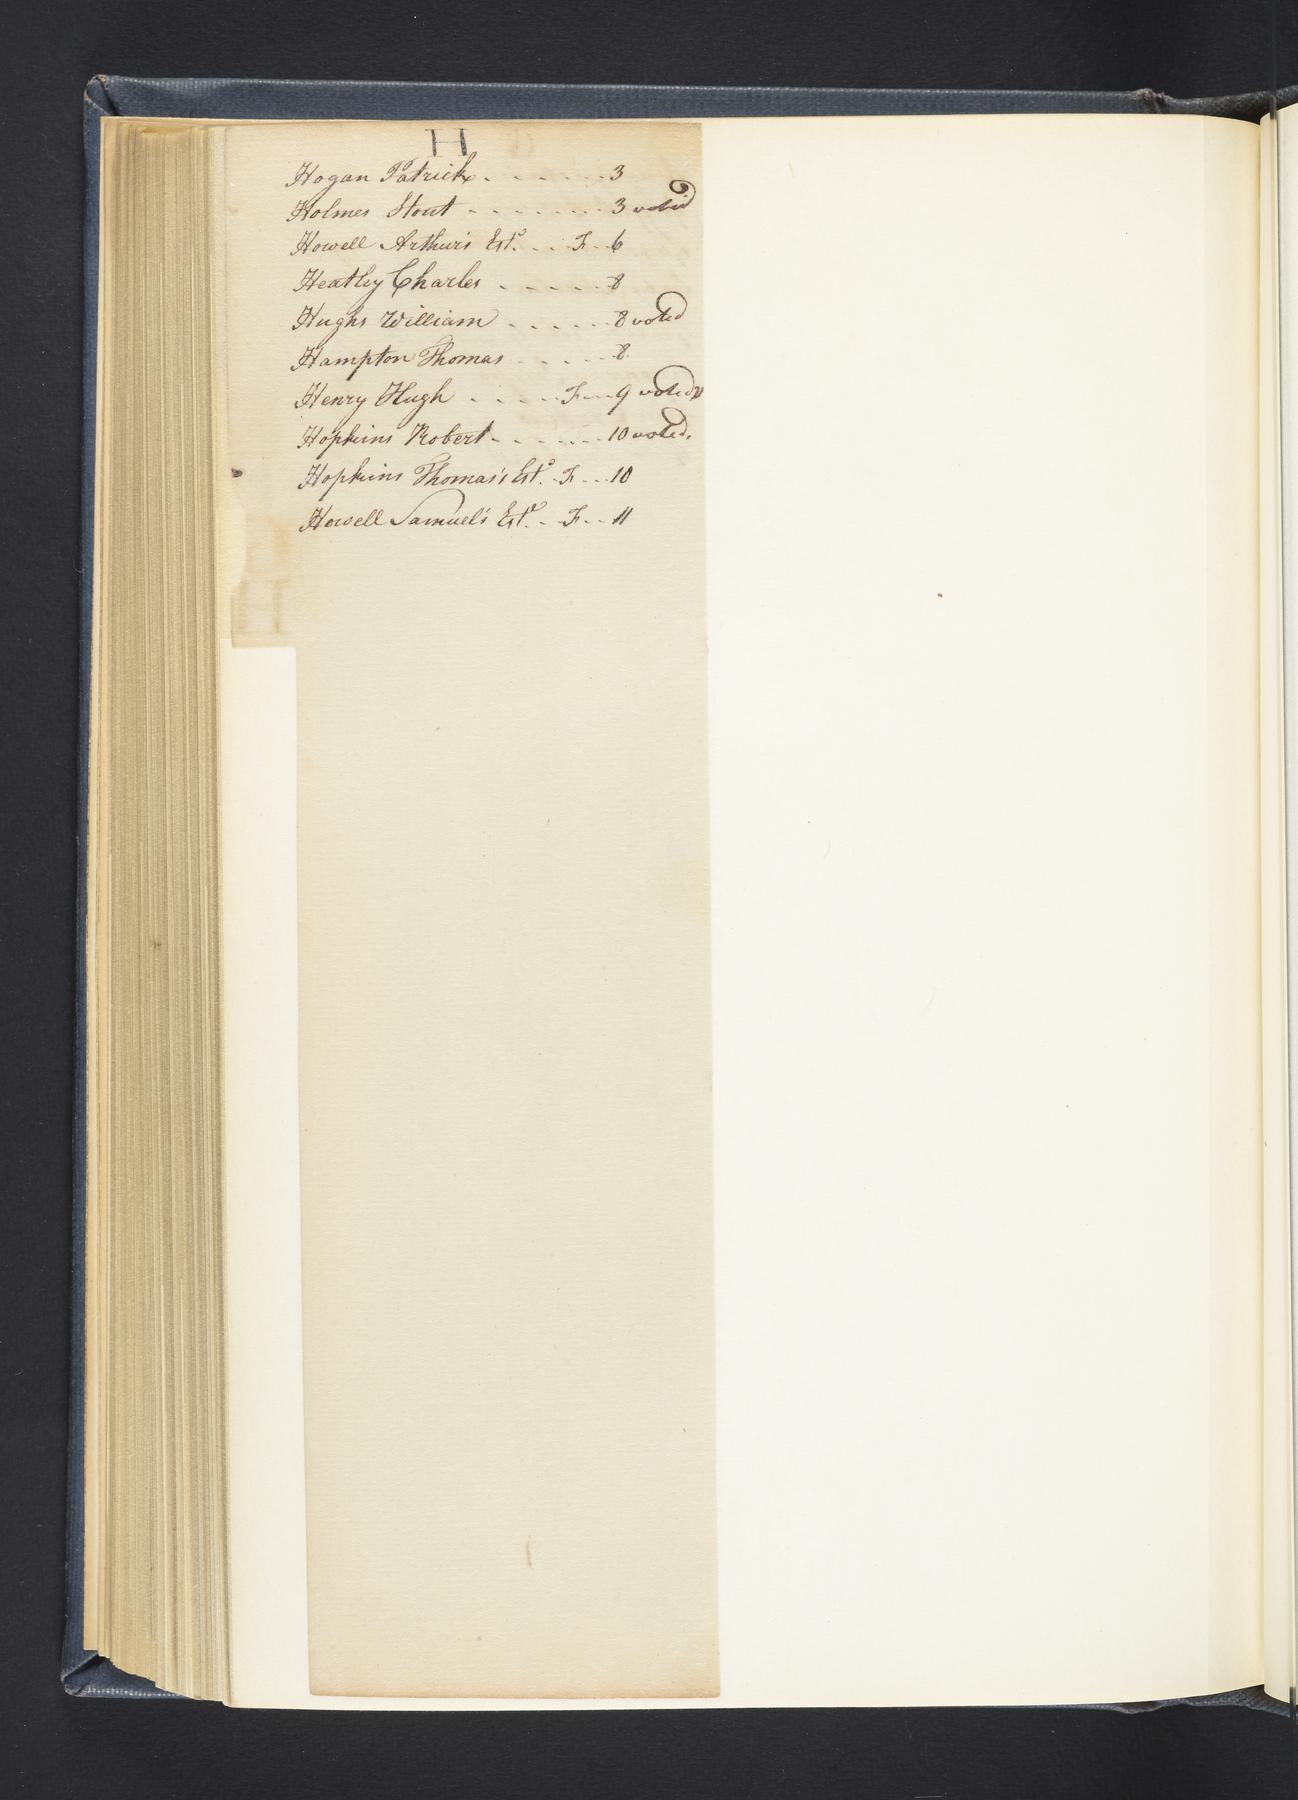 H
Hogan Patrick. - - - - - - 3
Holmes Stout - - - - - - - 3 voted
Howell Arthur's Estd. - - F. - 6
Heatley Charles - - - - - 8
Hughs William - - - - - - 8 voted
Hampton Thomas - - - - - 8.
Henry Hugh - - - - F. - - 9 voted
Hopkins Robert - - - - - - 10 voted.
Hopkins Thomas's Estd. - F. - - 10
Howell Samuel's Estd. - - F. - - 11